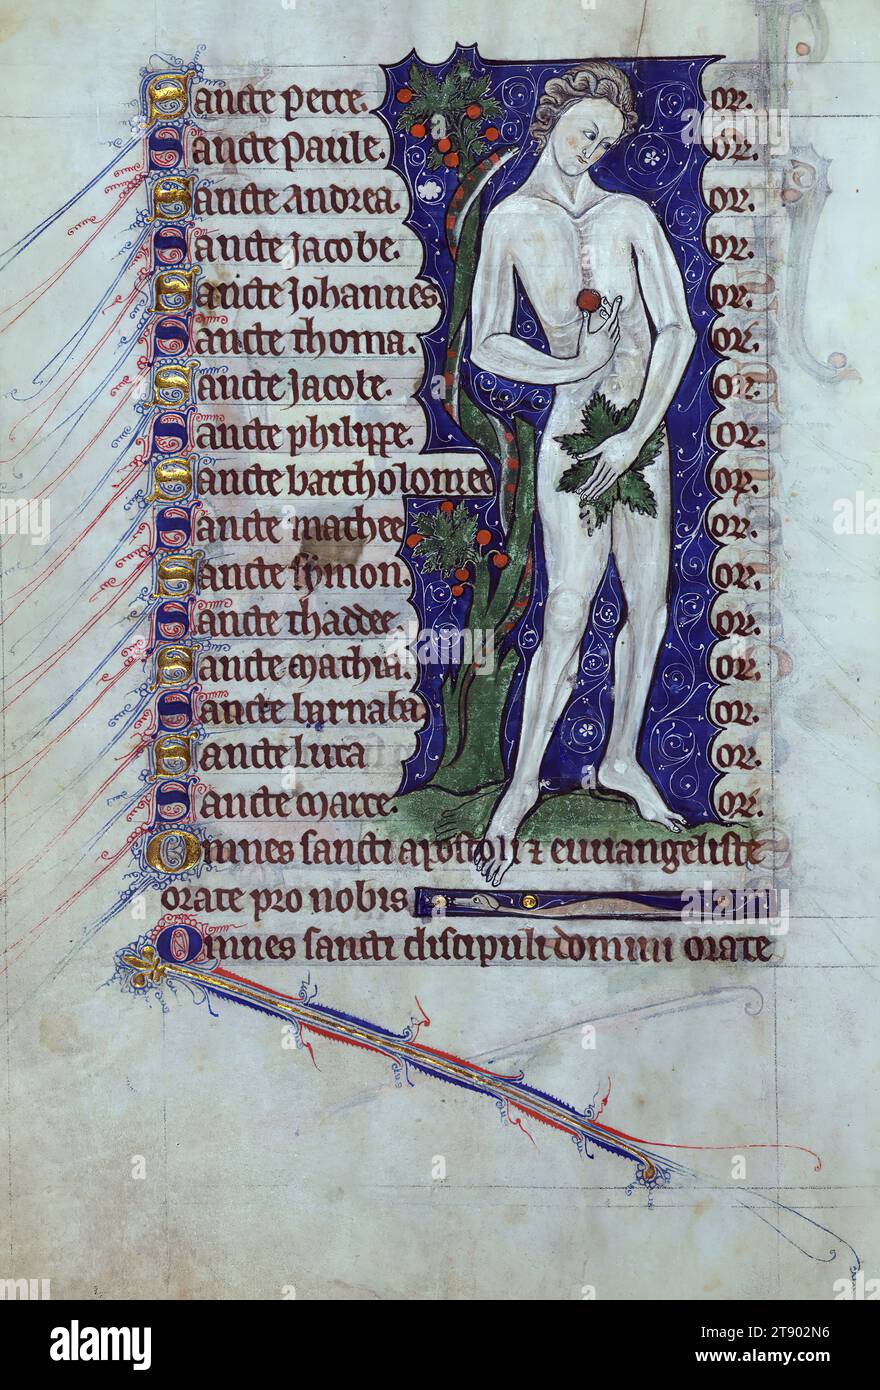 Sancte petre. or.
Sancte paule. or.
Sancte andrea. or.
Sancte jacobe. or.
Sancte johannes. or.
Sancte thoma. or.
Sancte jacobe. or.
Sancte philippe. or.
Sancte bartholomee or.
Sancte mathee or.
Sancte symon. or.
Sancte thaddee. or.
Sancte mathia. or.
Sancte barnaba. or.
Sancte luca or.
Sancte marce. or.
Omnes sancti apostoli ⁊ euuangeliste
orate pro nobis
Omnes sancti discipuli domini orate
alamy
Image ID: 2T902N6
www.alamy.com